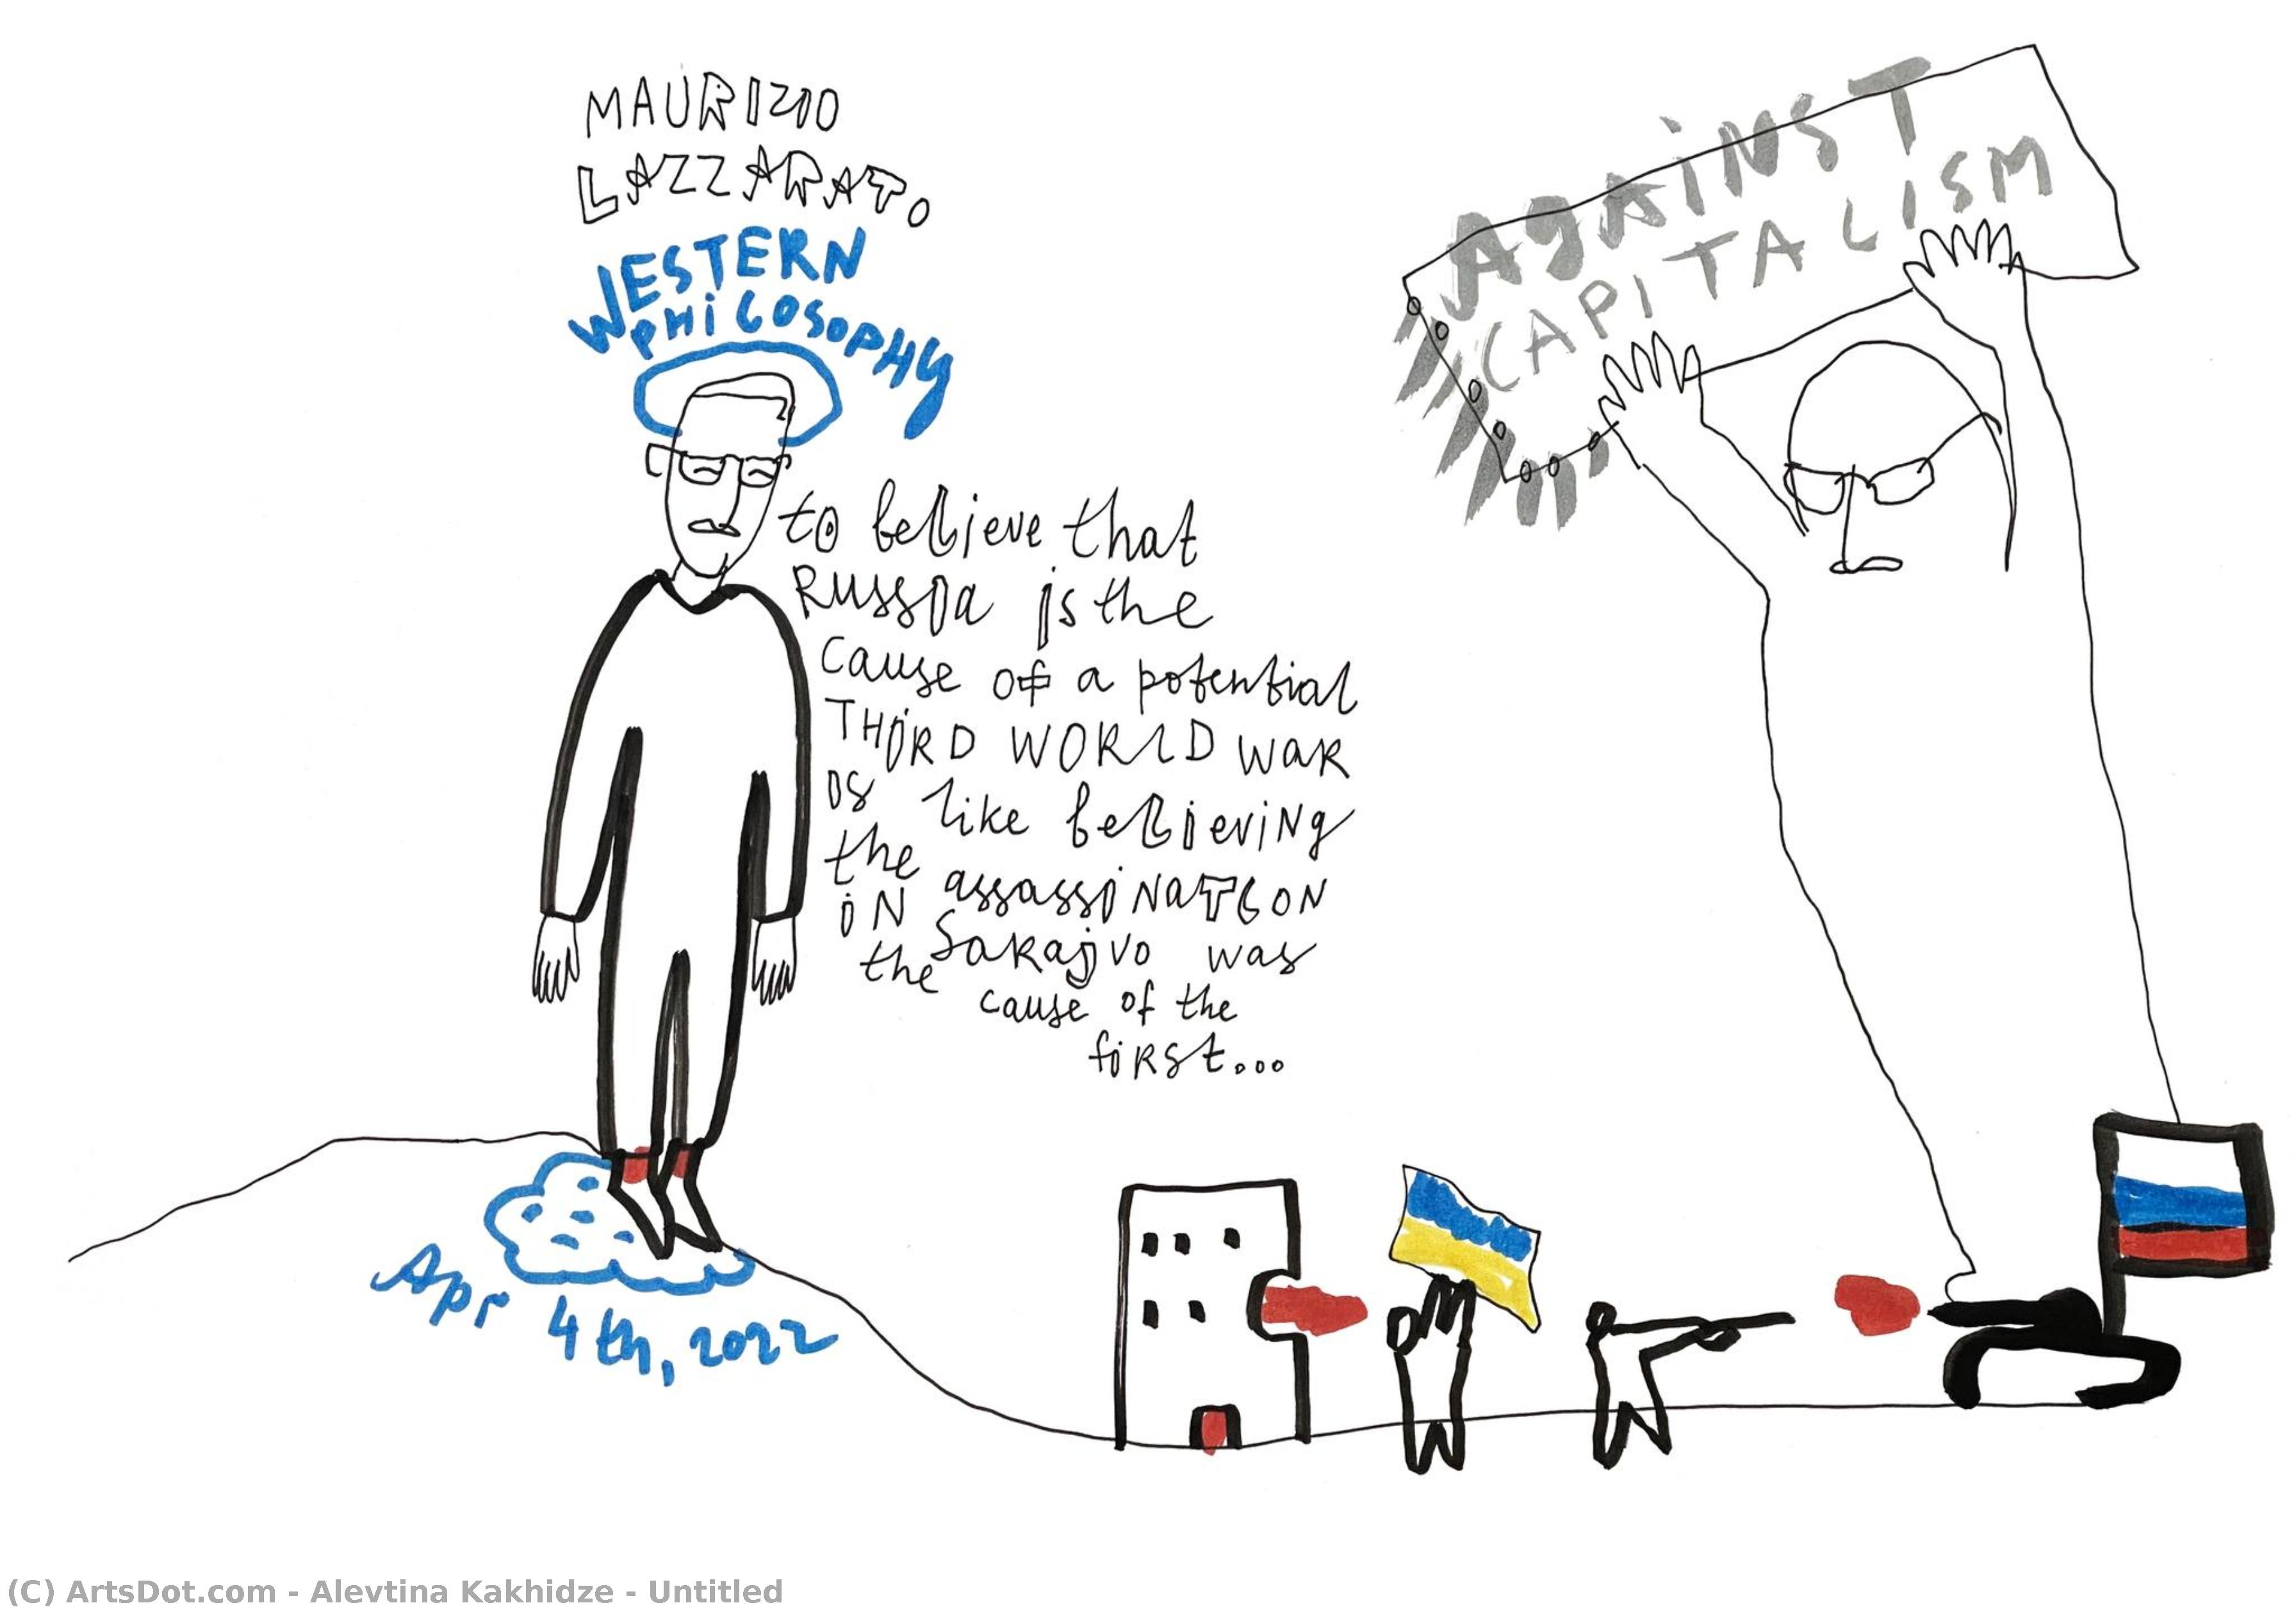 MAURIZIO
LAZZARATO
WESTERN
PHiLOSOPHY
to believe that
Russia is the
cause of a potential
THiRD WORLD WAR
is like believiNg
the assassiNatioN
iN Sarajvo was
the cause of the
first...
AgAiNST
CAPITALISM
Apr 4th, 2022
(C) ArtsDot.com - Alevtina Kakhidze - Untitled